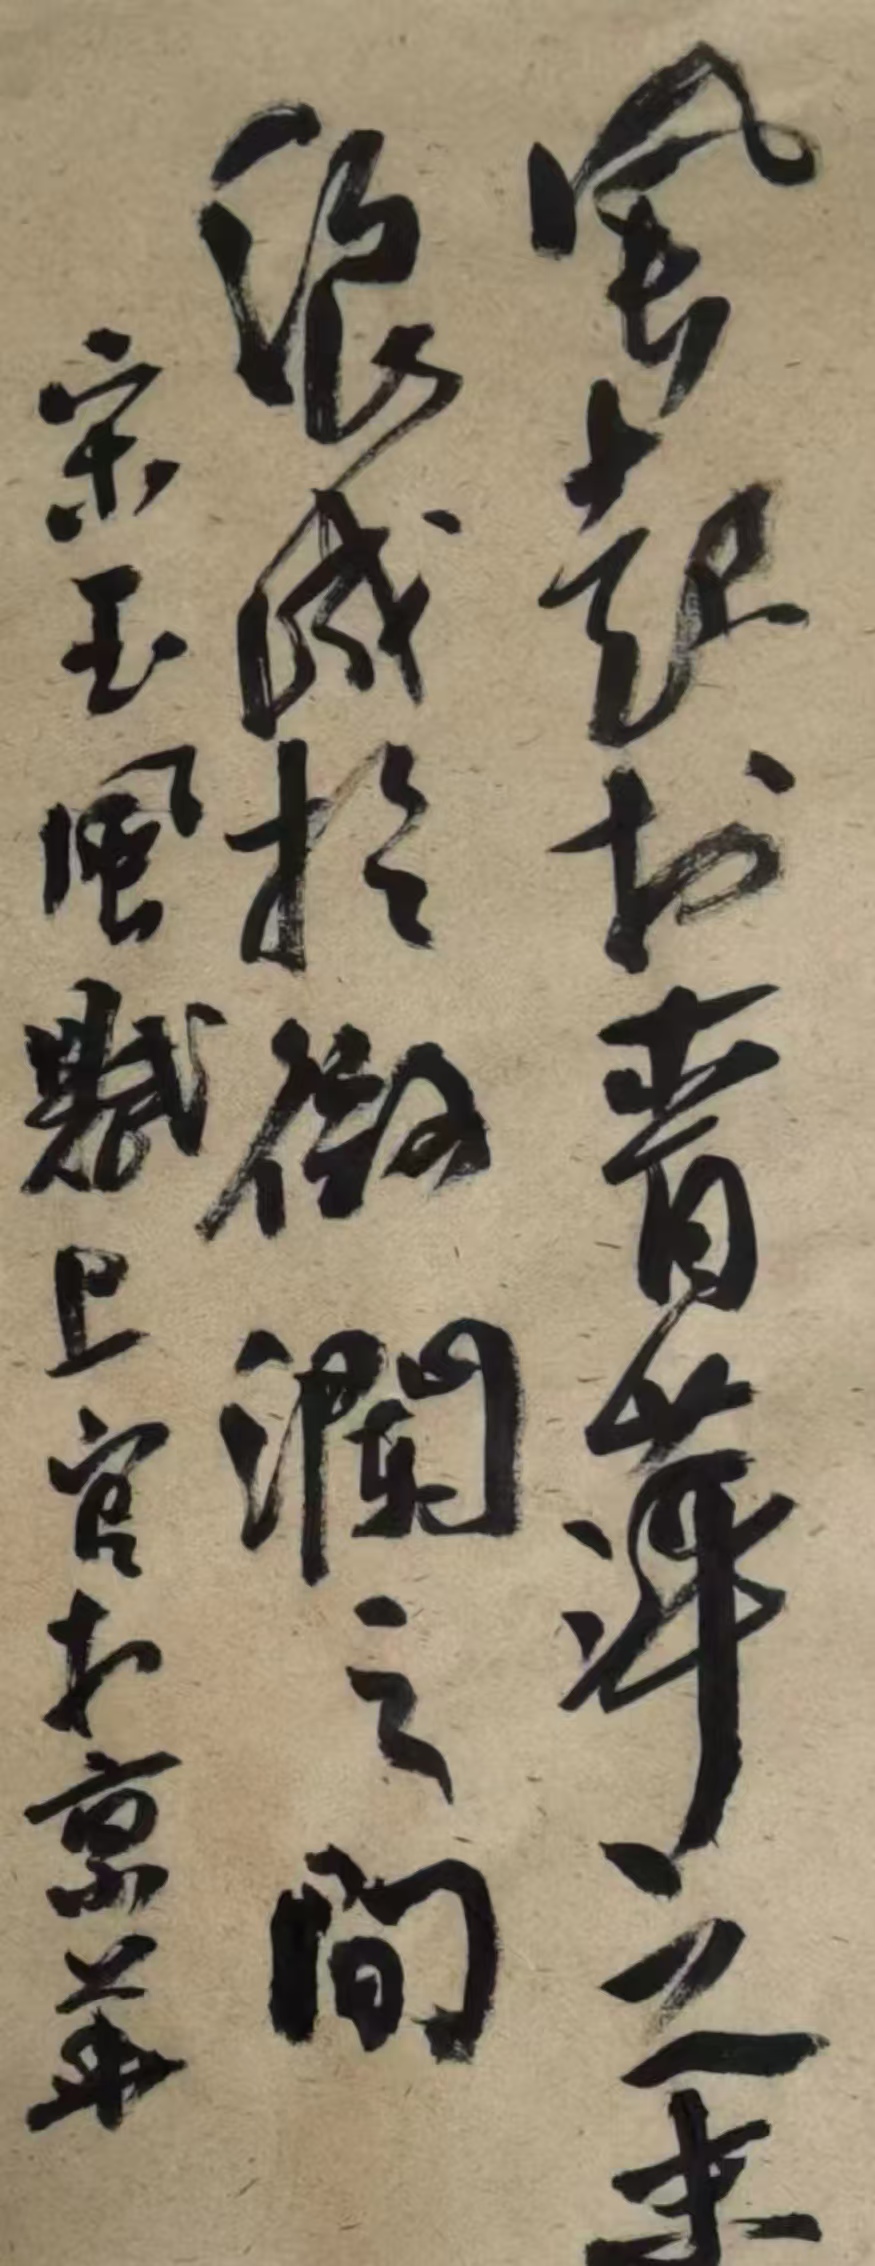 風起於青萍之末
浪成於微瀾之間
宋玉風賦上官於京華